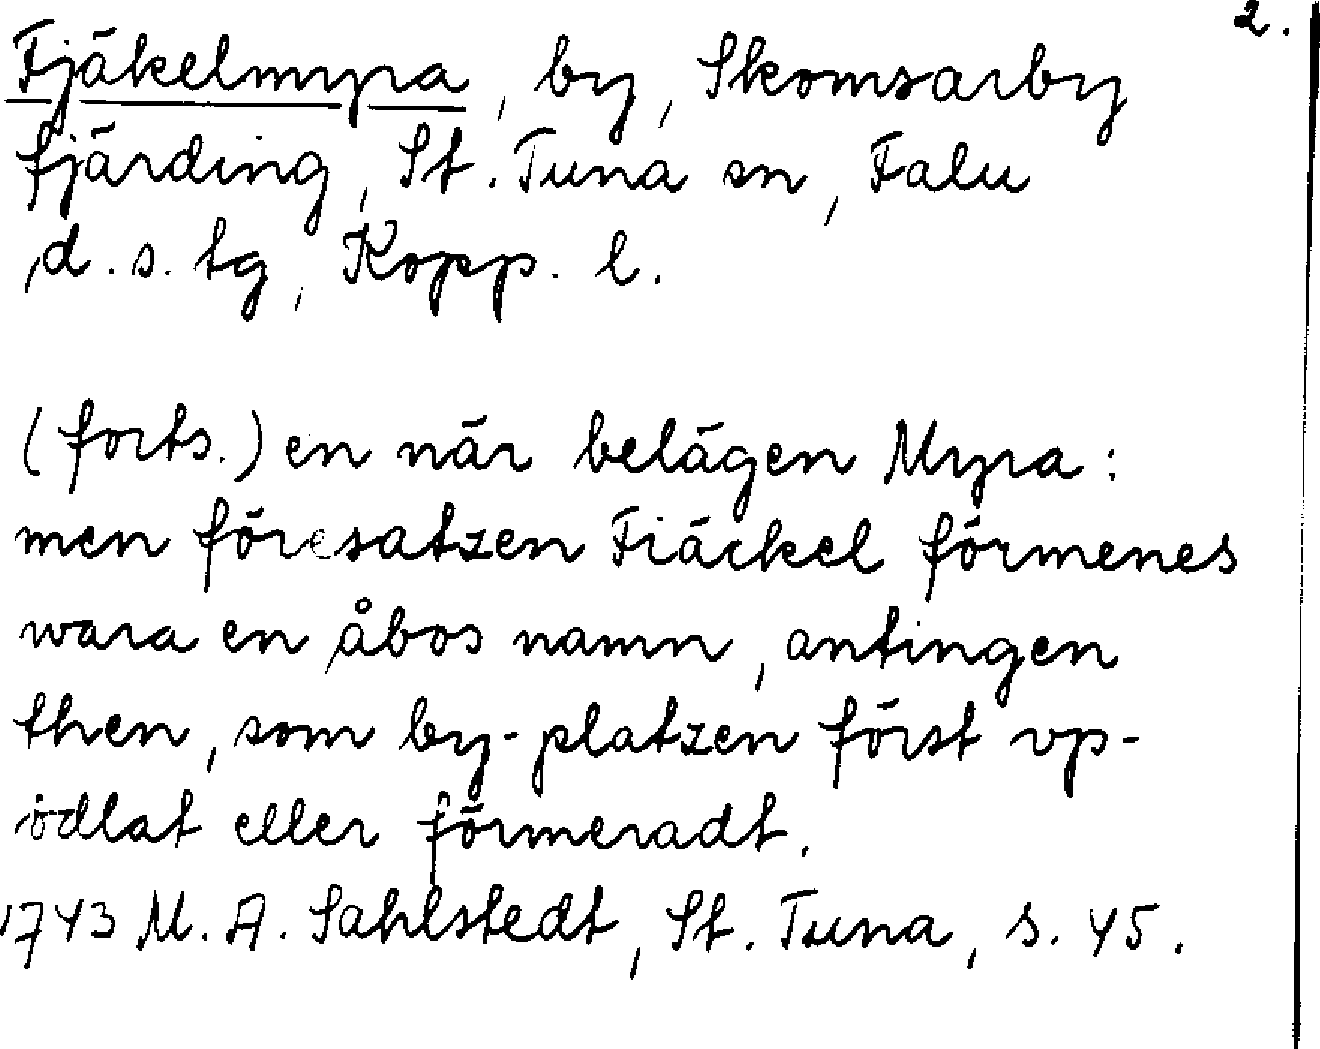 2.
Fjäkelmyra, by, Skomsarby
fjärding, St. Tuna sn, Falu
d.s. tg, Kopp. l.
(forts.) en när belägen Myra:
men föresatzen Fiäckel förmenes
wara en åbos namn, antingen
then, som by-platzen först vp-
ödlat eller förmeradt.
1743 M. A. Sahlstedt, St. Tuna, s. 45.